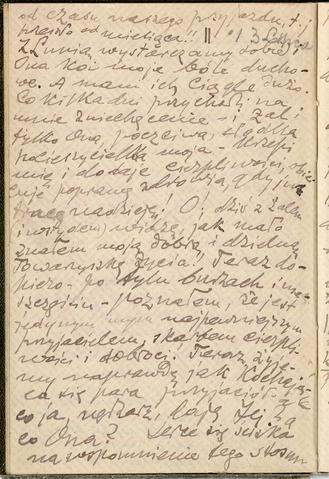 od czasu naszego przyjazdu, t. j.
przeszło od miesiąca!! 
Z Lunią wystarczamy sobie;
Ona koi moje bóle ducho-
we. A mam ich ciągle dużo.
Co kilka dni przychodzi na
mnie zniechęcenie - i żal i
tylko Ona poczciwa, słodka
pocieszycielka moja - krzepi
mnie i dodaje cierpliwości, obie-
cuje poprawę zdrowia, gdy już
tracę nadzieję! O, dziś z żalem
i wstydem widzę, jak mało
znałem moją dobrą i dzielną
towarzyszkę życia! Teraz do-
piero - po tylu burzach i nie-
szczęściu - poznałem, że jest
jedynym mym najpewniejszym
przyjacielem, skarbem cierpli-
wości i dobroci. Teraz żyje-
my naprawdę jak kochają-
ca się para przyjaciół. Ale
co ja, nędzarz, dają Jej, za
co Ona? Serce się ściska
na wspomnienie tego stosun-